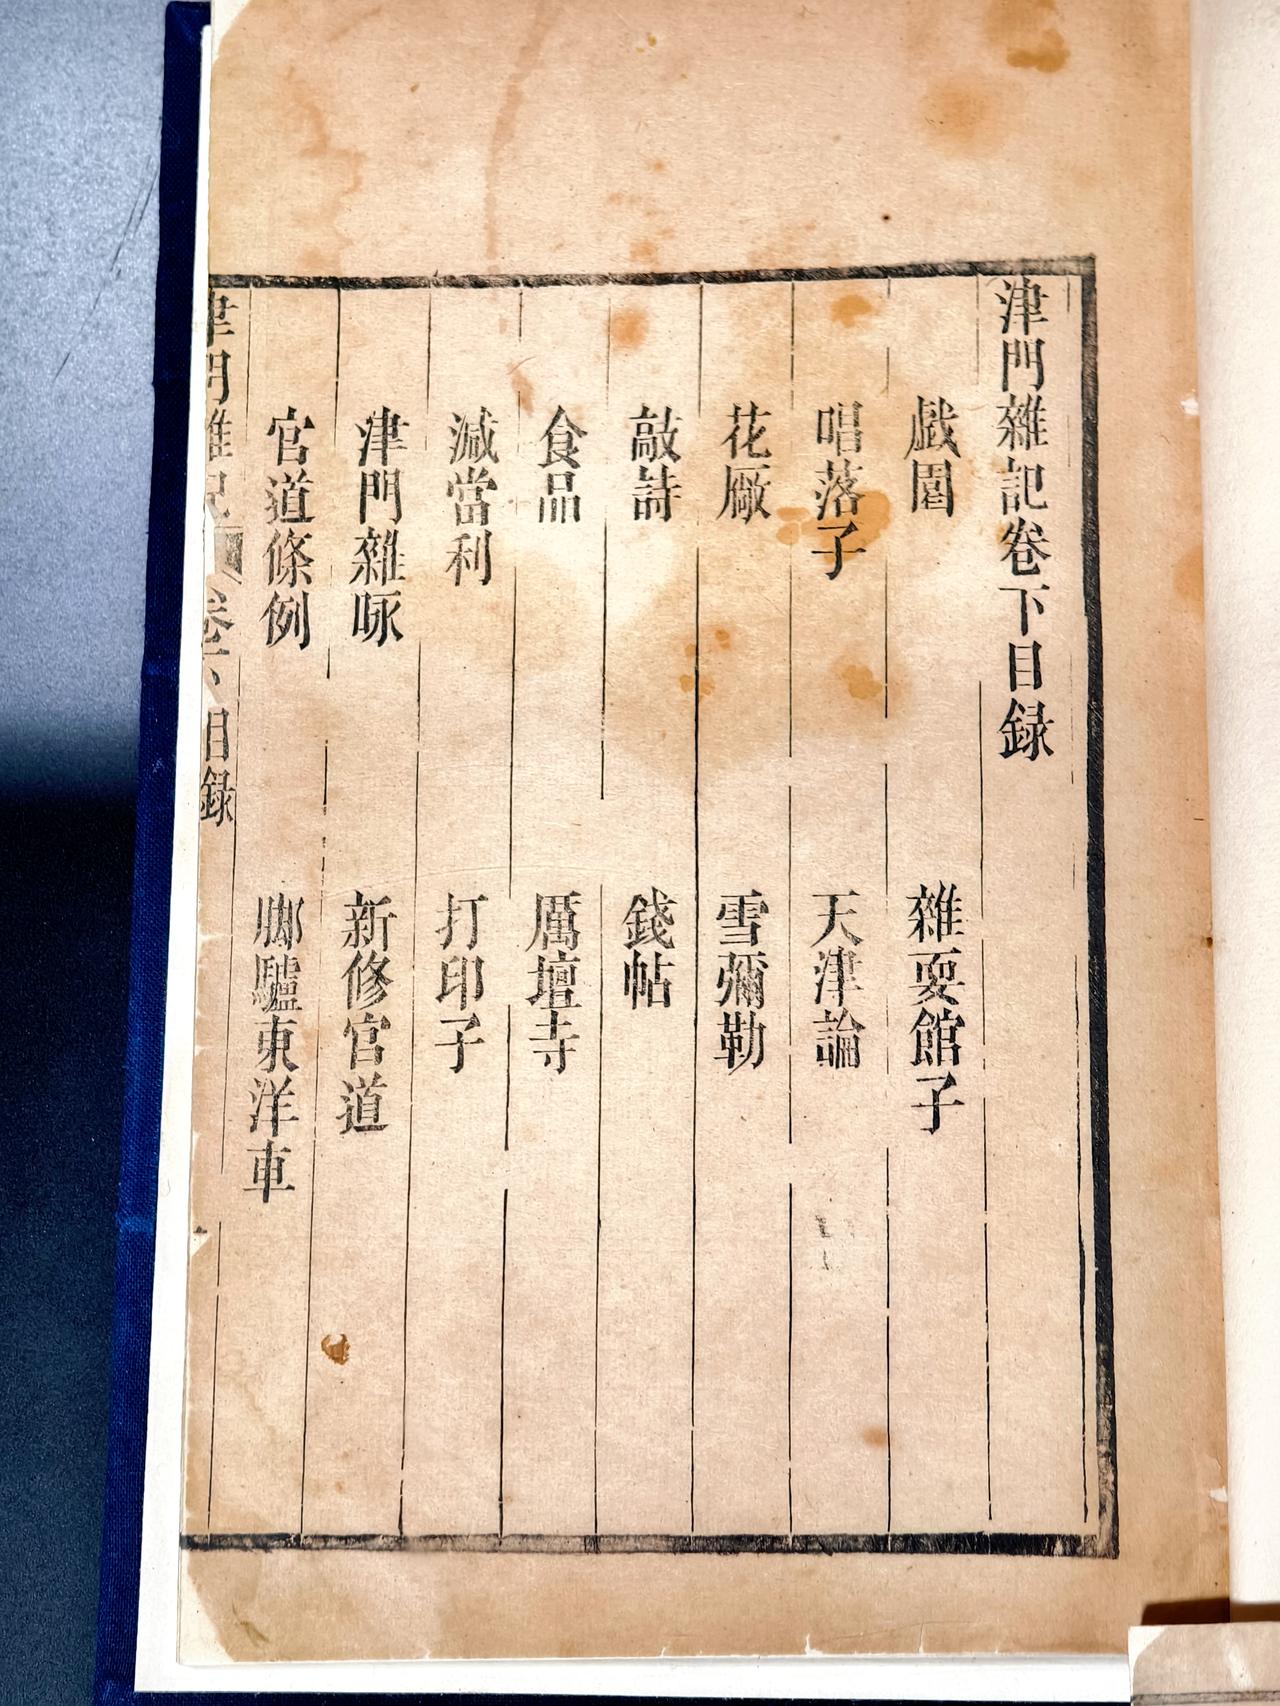 津門雜記卷下目録
戲園　雜耍館子
唱落子　天津論
花厰　雪彌勒
敲詩　錢帖
食品　厲壇寺
減當利　打印子
津門雜咏　新修官道
官道條例　脚驢東洋車
津門雜記　卷下　目錄